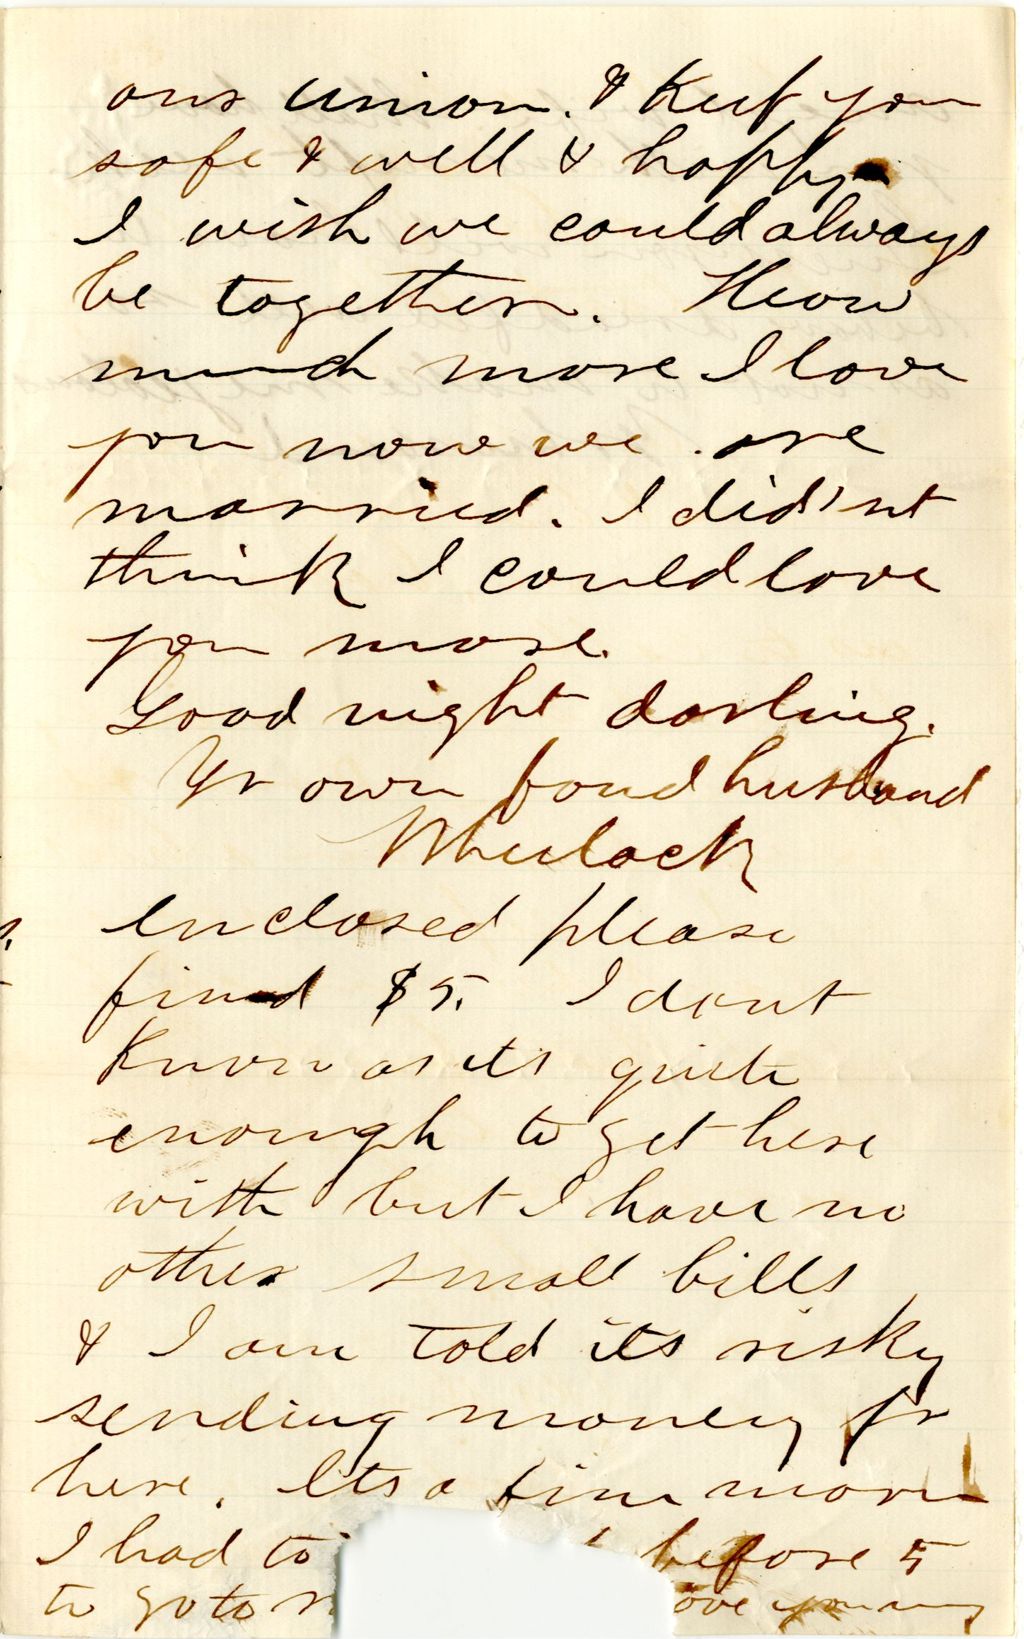 our union. & Keep you
safe & well & happy
I wish we could always
be together. How
much more I love
you now we are
married. I did'nt
think I could love
you more.
Good night darling.
Yr own fond husband
Wheelock
Enclosed please
find $5. I dont
Know as its quite
enough to get here
with but I have no
other small bills
& I am told its risky
sending money fr
here. Its a fine morn
I had to before 5
to go to love you my